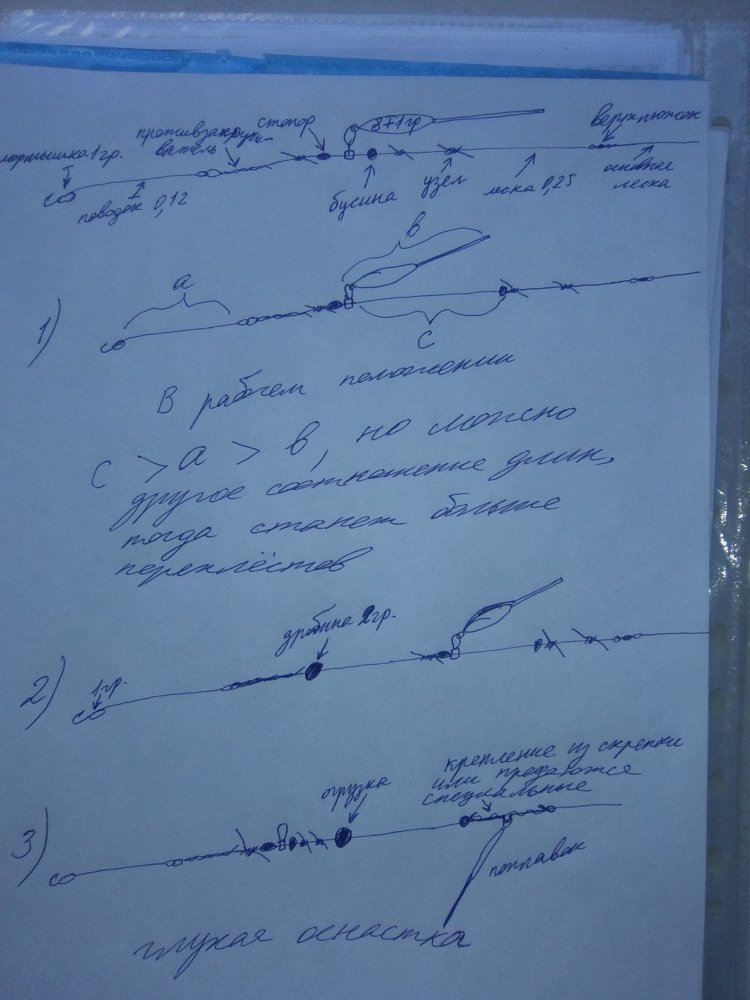 мормышка 1гр.
противзакручи-
ватель
стопор
3+1гр
вертлюжок
поводок 0,12
бусина
узел
леска 0,25
основная
леска
1)
a
в
c
В рабочем положении
c > a > в, но можно
другое соотношение длин,
тогда станет больше
перехлёстов
2)
1гр.
дробина 2гр.
3)
огрузка
крепление из скрепки
или продаются
специальные
поплавок
глухая оснастка